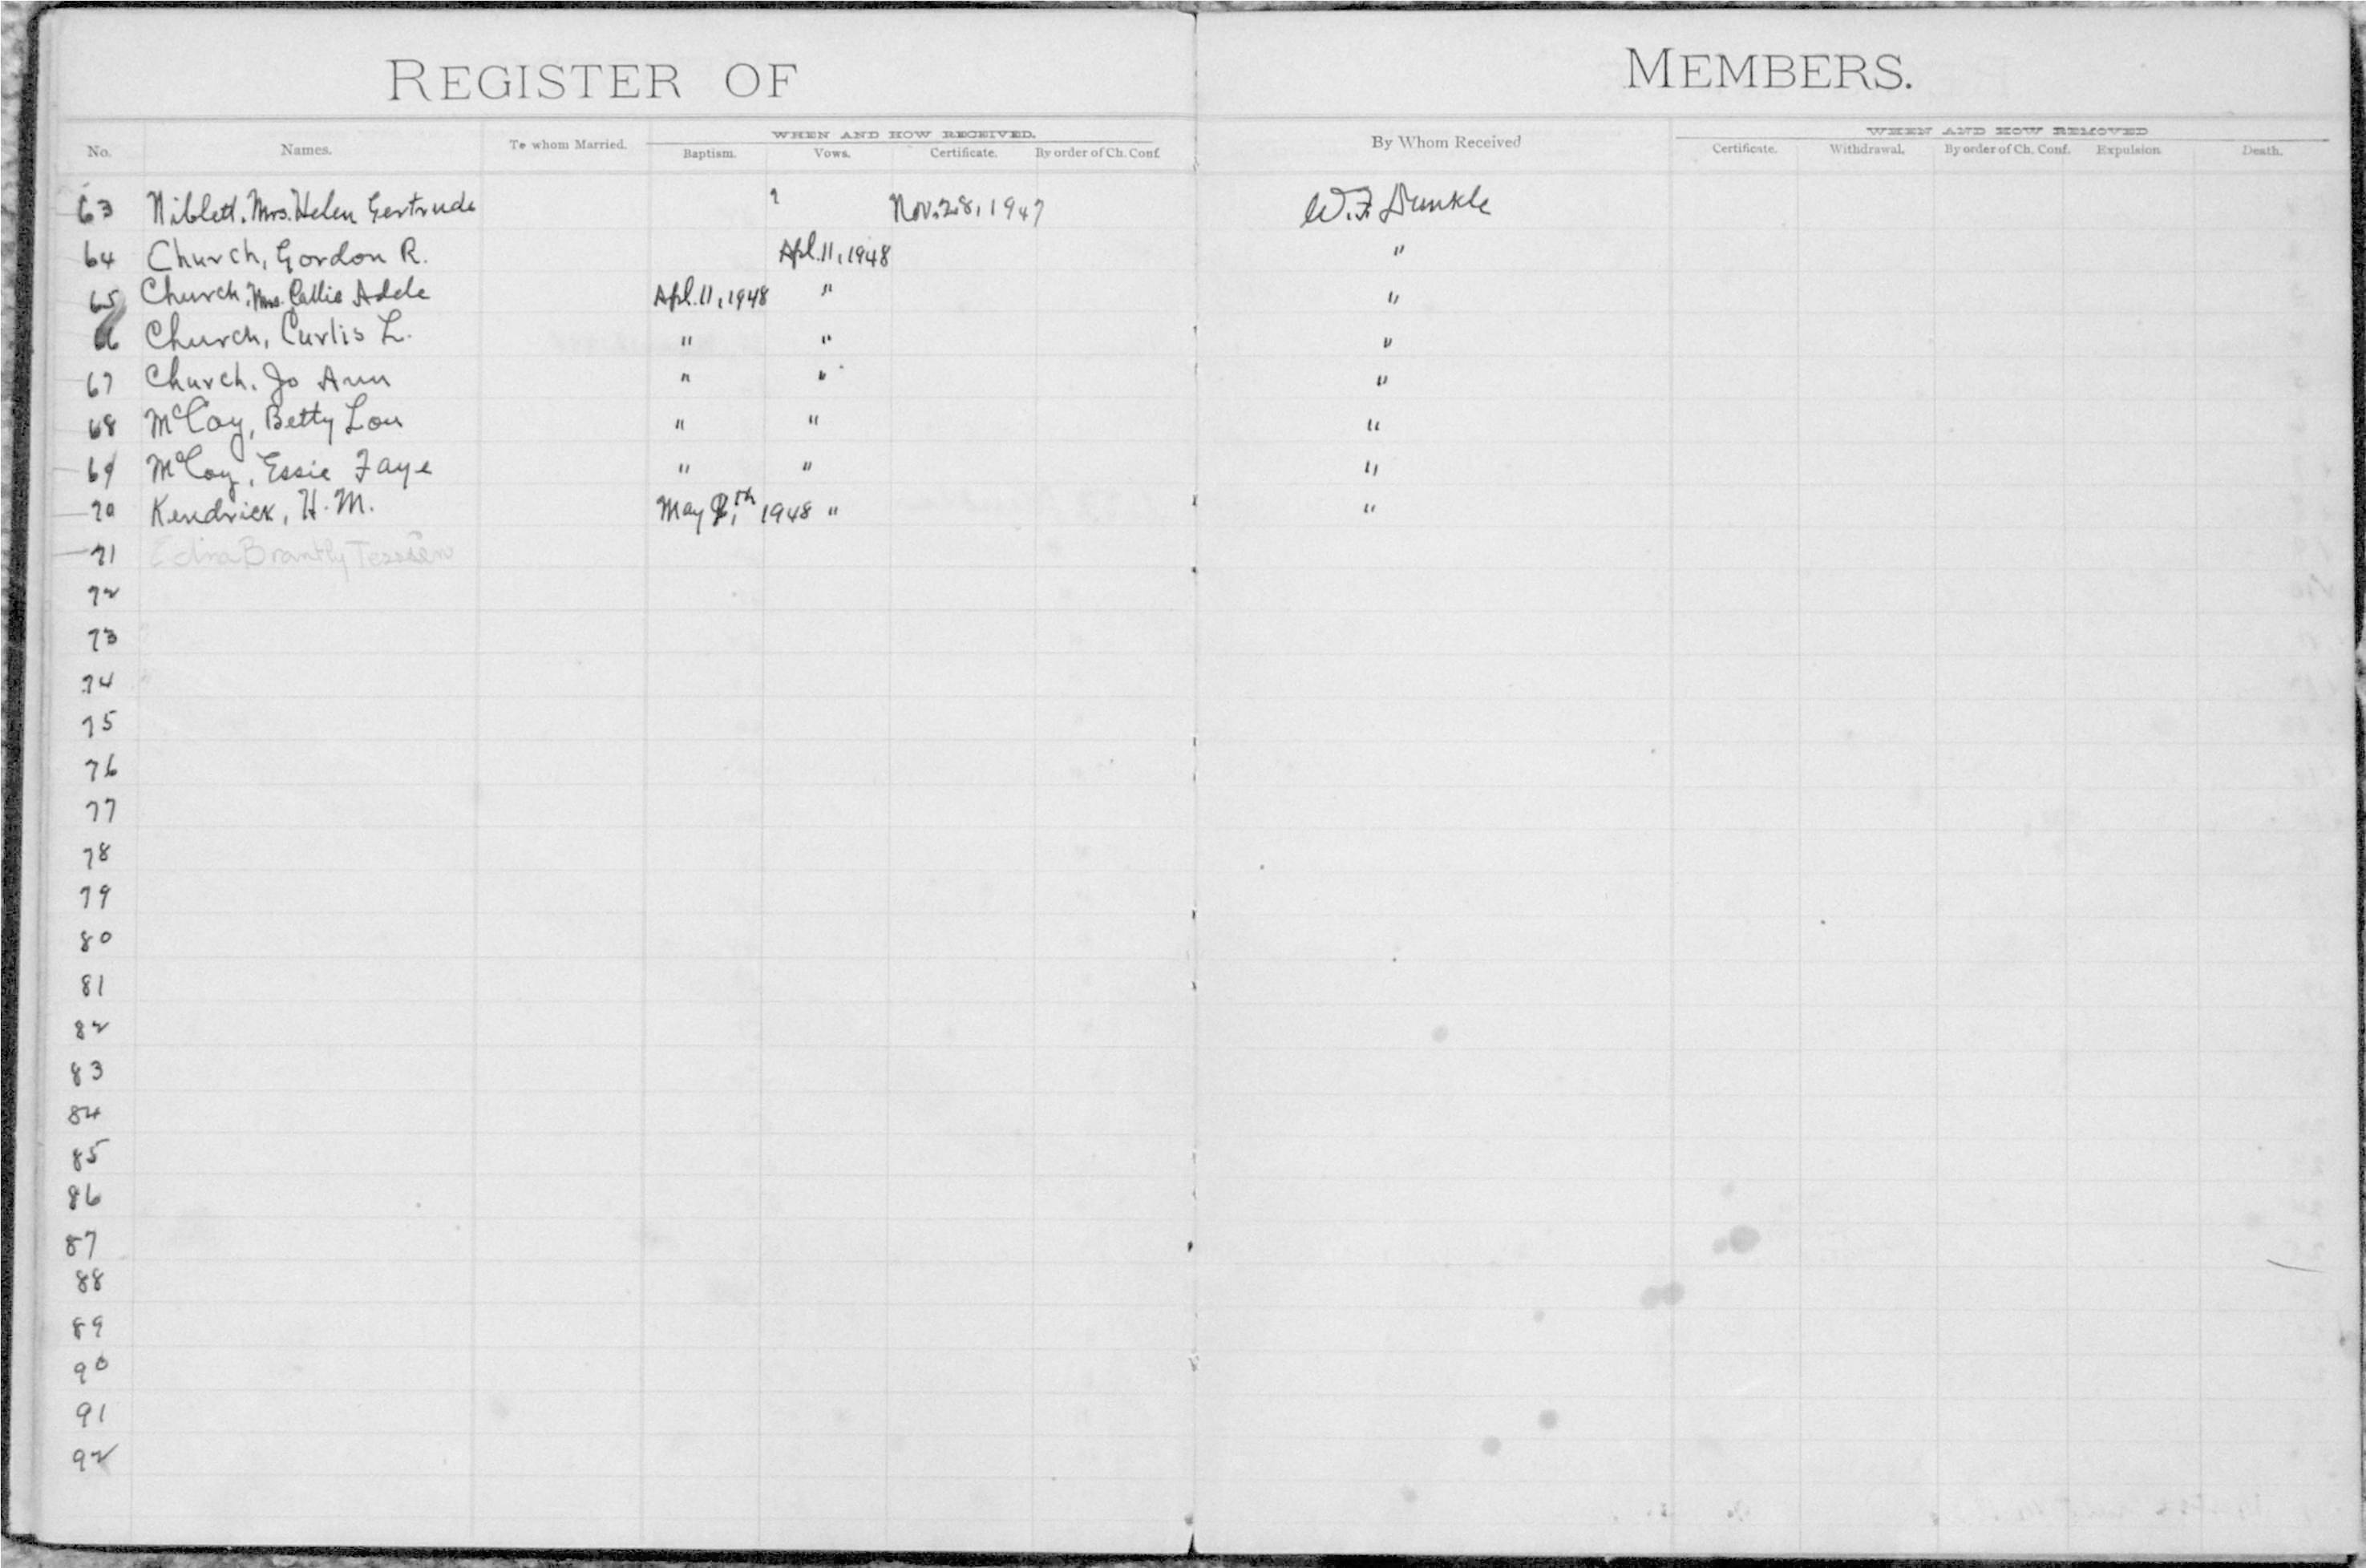 REGISTER OF MEMBERS.
WHEN AND HOW RECEIVED. WHEN AND HOW REMOVED
No. Names. To whom Married. Baptism. Vows. Certificate. By order of Ch. Conf. By Whom Received Certificate. Withdrawal. By order of Ch. Conf. Expulsion Death.
63 Niblett, Mrs. Helen Gertrude ? Nov. 28, 1947 W. F. Dunkle
64 Church, Gordon R. Apl. 11, 1948 "
65 Church, Mrs. Callie Adele Apl. 11, 1948 " "
66 Church, Curtis L. " " "
67 Church, Jo Ann " " "
68 McCoy, Betty Lou " " "
69 McCoy, Essie Faye " " "
70 Kendrick, H. M. May th, 1948 " "
71 Edna Brantly
72
73
74
75
76
77
78
79
80
81
82
83
84
85
86
87
88
89
90
91
92